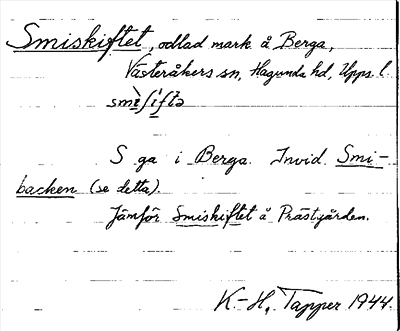 Smiskiftet, odlad mark å Berga,
Västeråkers sn, Hagunda hd, Upps. l.
smìʃíftə
S ga i Berga. Invid Smi-
backen (se detta).
Jämför Smiskiftet å Prästgården.
K.-H. Tapper 1944.